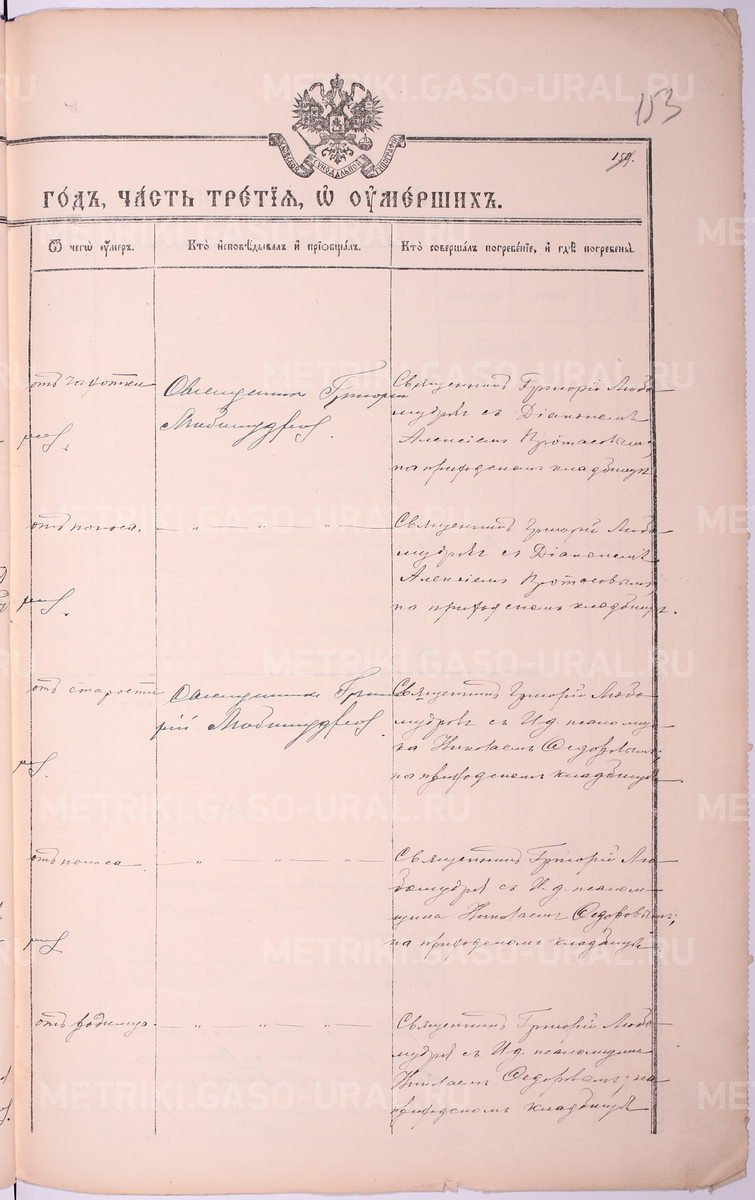 METRIKI.GASO-URAL.RU
153
159.
МОСКОВСКОЙ СѴНОДАЛЬНОЙ ТИПОГРАФІИ
ГОДЪ, ЧАСТЬ ТРЕТІЯ, Ѿ ОУМЕРШИХЪ.
Ѿ чегѡ оумеръ.
Кто исповѣдывалъ и прїобщалъ.
Кто совершалъ погребенїе, и гдѣ погребены.
отъ чахотки
Священникъ Григорій
Любомудровъ.
Священникъ Григорій Любо-
мудровъ съ Діакономъ
Алексіемъ Протасовымъ,
на приходскомъ кладбищѣ
отъ поноса.
— „ — „ — „ —
Священникъ Григорій Любо-
мудровъ съ Діакономъ
Алексіемъ Протасовымъ,
на приходскомъ кладбищѣ.
отъ старости
Священникъ Григо-
рій Любомудровъ.
Священникъ Григорій Любо-
мудровъ съ И. д. псаломщи-
ка Николаемъ Федоровымъ,
на приходскомъ кладбищѣ.
отъ поноса
— „ — „ — „ —
Священникъ Григорій Лю-
бомудровъ съ И. д. псалом-
щика Николаемъ Федоровымъ,
на приходскомъ кладбищѣ
отъ родимца.
— „ — „ — „ —
Священникъ Григорій Любо-
мудровъ съ И. д. псаломщика
Николаемъ Федоровымъ, на
приходскомъ кладбищѣ